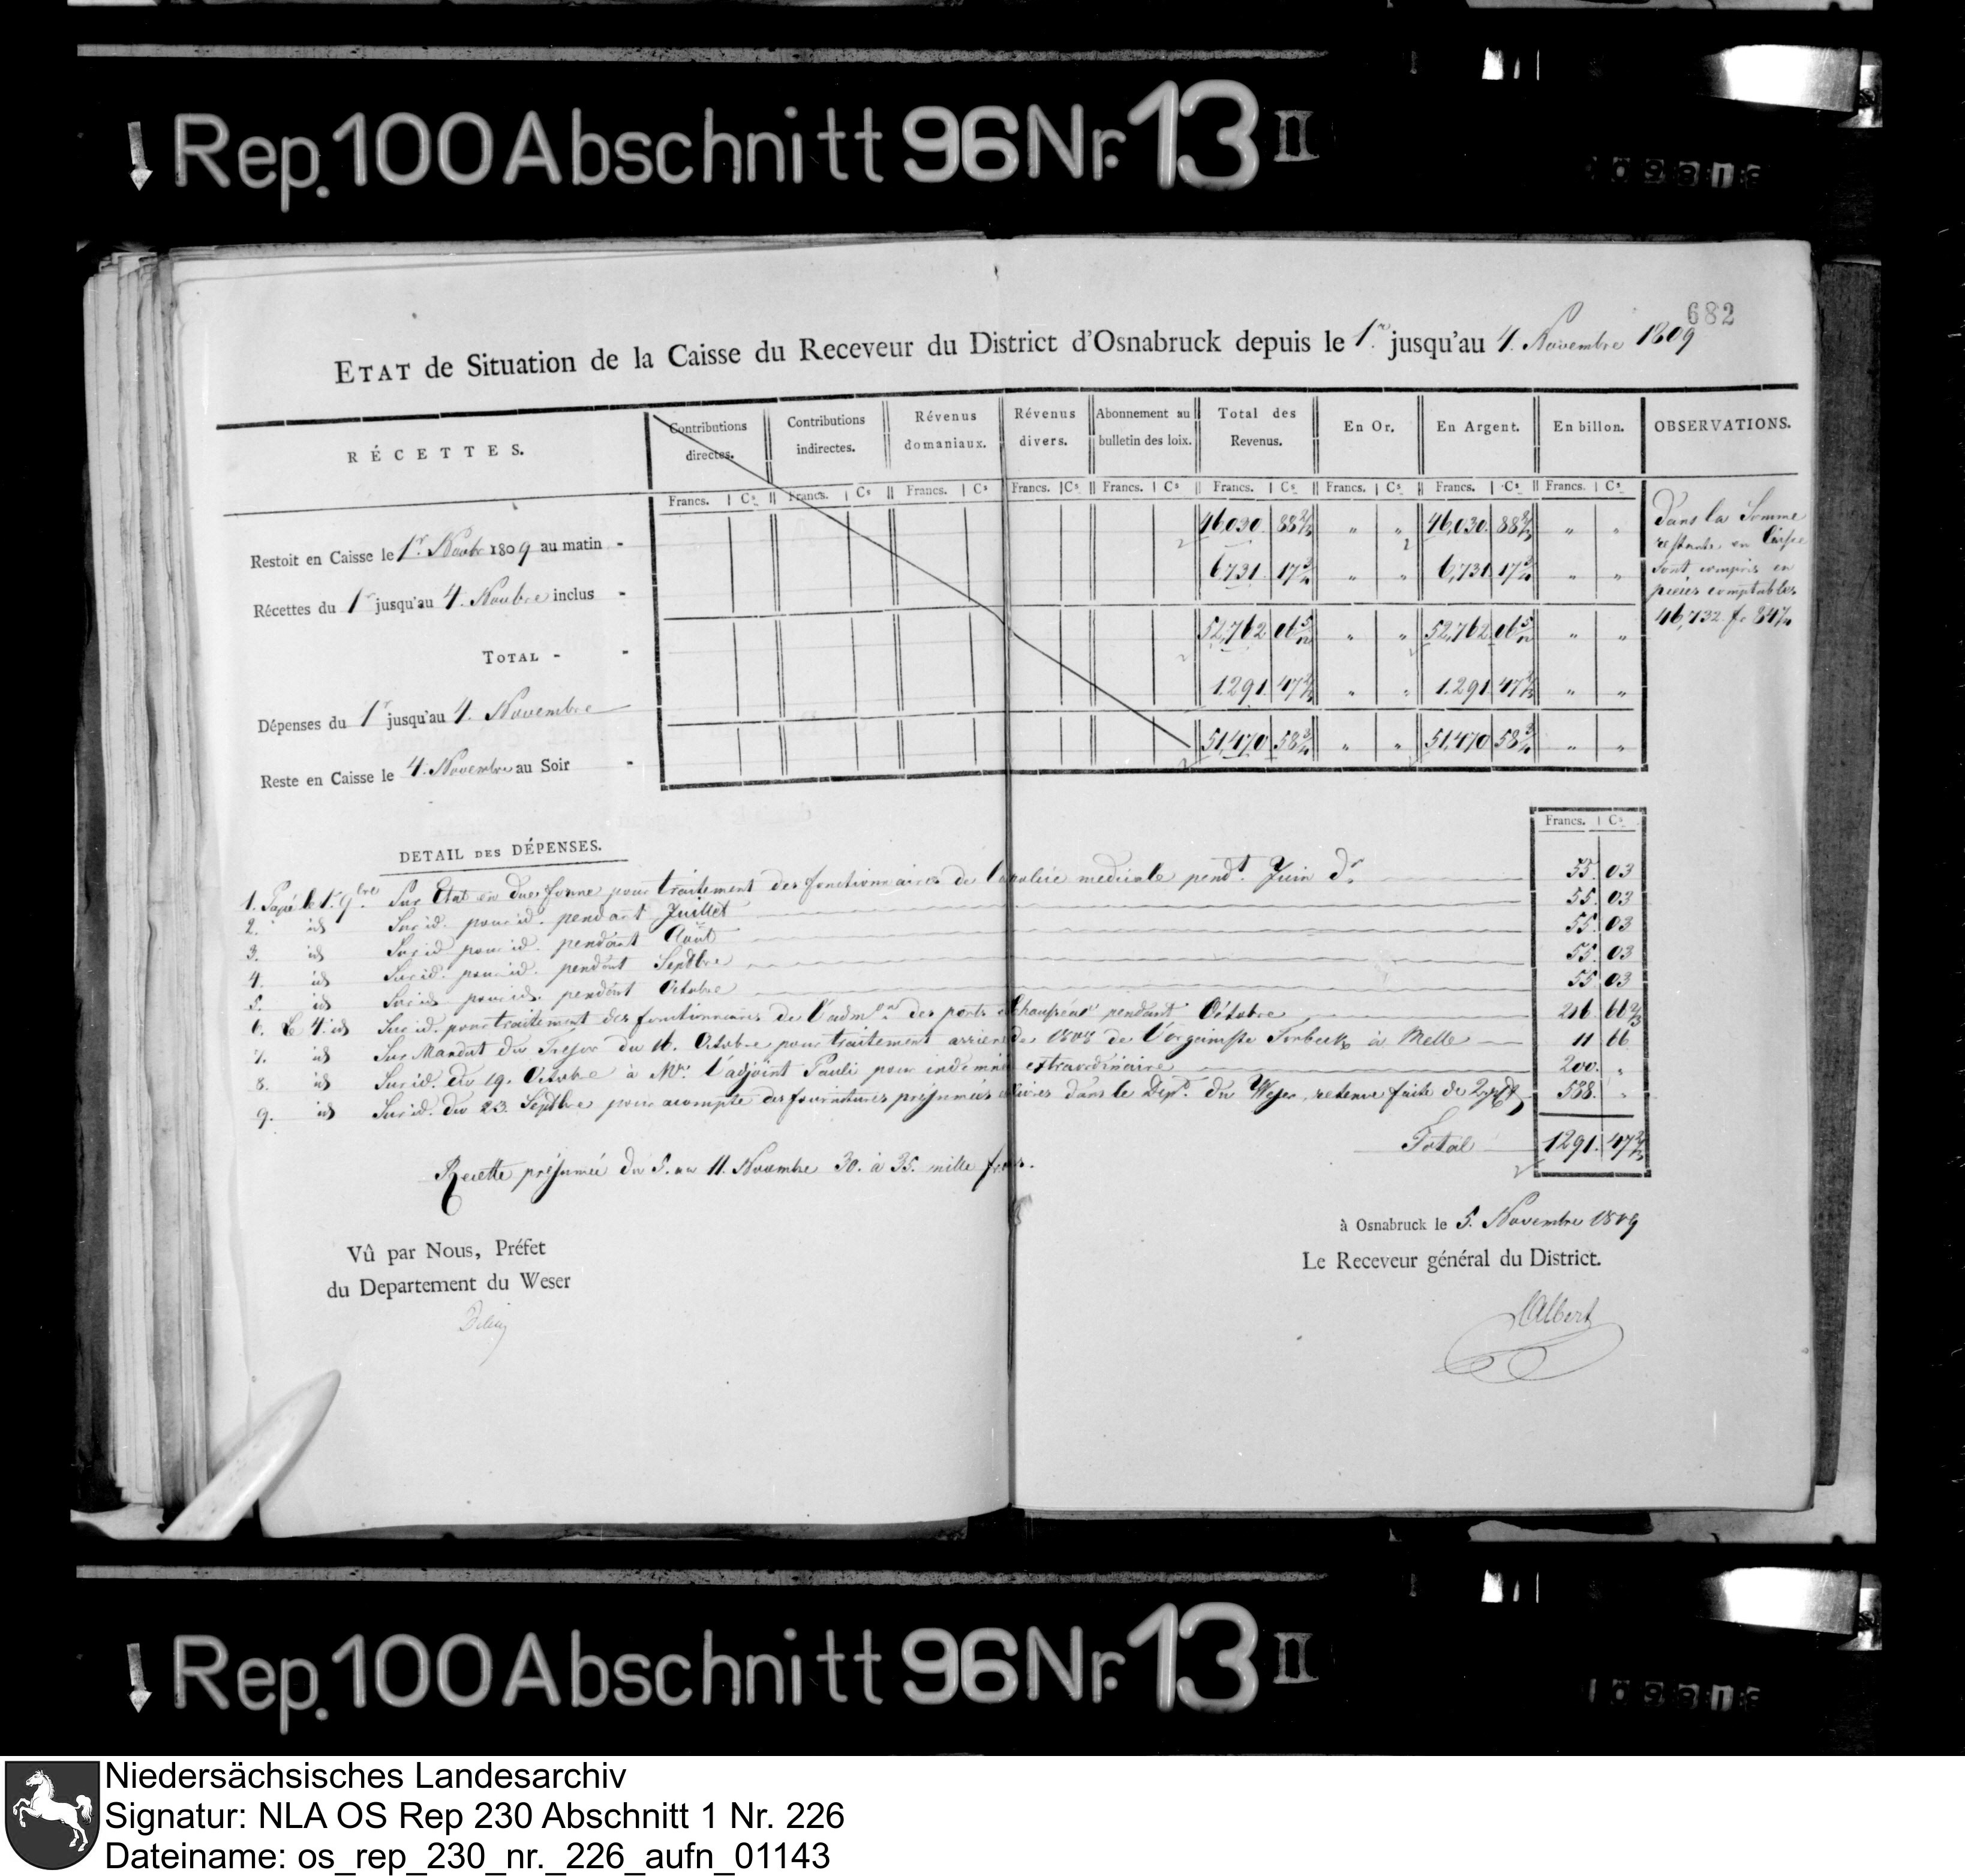 Rep. 100 Abschnitt 96 Nr. 13 II
682
ETAT de Situation de la Caisse du Receveur du District d'Osnabruck depuis le 1.r jusqu'au 4. Novembre 1809
RÉCETTES. Contributions directes. Contributions indirectes. Révenus domaniaux. Révenus divers. Abonnement au bulletin des loix. Total des Revenus. En Or. En Argent. En billon. OBSERVATIONS.
Francs. Cs Francs. Cs Francs. Cs Francs. Cs Francs. Cs Francs. Cs Francs. Cs Francs. Cs Francs. Cs
Restoit en Caisse le 1.r Novbr 1809 au matin - 46,030. 88 " " 46,030. 88 " "
Récettes du 1r jusqu'au 4. Novbre inclus - 6,731. 17 " " 6,731 17 " "
TOTAL - - 52,762 06 " " 52,762. 06 " "
Dépenses du 1r jusqu'au 4. Novembre 1.291. 47 " " 1.291 47 " "
Reste en Caisse le 4. Novembre au Soir - 51,470 58 " " 51,470 58 " "
Dans la Somme
restante en Caisse
sont compris en
pièces comptables
46,732 f. 84
DETAIL DES DÉPENSES. Francs. Cs
1. Payé le 1. 9bre Sur Etat en due forme pour traitement des fonctionnaires de médicale pendt. Juin dr. 55. 03
2. id Sur id. pour id. pendant Juillet 55. 03
3. id Sur id pour id. pendant Août 55. 03
4. id Sur id. pour id. pendant Septbre 55. 03
5. id Sur id pour id. pendant Octobre 55 03
6. le 4. id Sur id. pour traitement des fonctionnaires de l'admon des ponts et Chaussées pendant Octobre 216 66 2/3
7. id Sur Mandat du Tresor du 16. Octobre pour traitement arriéré de 1808 de l'organiste à Melle 11 66
8. id Sur id. du 19. Octobre à Mr. l'adjoint Pauli pour indemnité extraordinaire 200. "
9. id Sur id. du 23. Septbre pour acompte des fournitures présumées dans le Dept. du Weser, retenue faite de 588. "
Total 1291. 47
Recette présumée du 5. au 11. Novembre 30. à 35. mille francs.
à Osnabruck le 5. Novembre 1809
Vû par Nous, Préfet
du Departement du Weser
Le Receveur général du District.
Albert
Rep. 100 Abschnitt 96 Nr. 13 II
Niedersächsisches Landesarchiv
Signatur: NLA OS Rep 230 Abschnitt 1 Nr. 226
Dateiname: os_rep_230_nr._226_aufn_01143